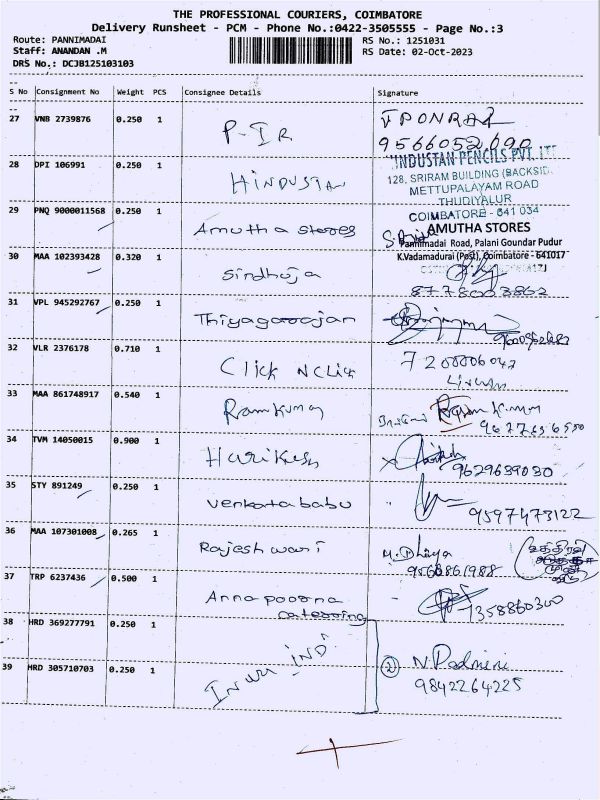 THE PROFESSIONAL COURIERS, COIMBATORE
Delivery Runsheet - PCM - Phone No.:0422-3505555 - Page No.:3
Route: PANNIMADAI
Staff: ANANDAN .M
DRS No.: DCJB125103103
RS No.: 1251031
RS Date: 02-Oct-2023
S No Consignment No Weight PCS Consignee Details Signature
27 VNB 2739876 0.250 1 P-IR J PONRAJ
9566052090
28 DPI 106991 0.250 1 HINDUSTAN HINDUSTAN PENCILS PVT. LT
128, SRIRAM BUILDING (BACKSID
METTUPALAYAM ROAD
THUDIYALUR
COIMBATORE - 641 034
29 PNQ 9000011568 0.250 1 Amutha stores AMUTHA STORES
Pannimadai Road, Palani Goundar Pudur
K.Vadamadurai (Post), Coimbatore - 641017
30 MAA 102393428 0.320 1 Sindhuja
8778003862
31 VPL 945292767 0.250 1 Thiyagoorajan
32 VLR 2376178 0.710 1 Click NClick
33 MAA 861748917 0.540 1 Ramkumar
34 TVM 14050015 0.900 1 Harikesh
9629639030
35 STY 891249 0.250 1 venkatababu
9597473122
36 MAA 107301008 0.265 1 Rajeshwari M. Dhivya
9566861988
37 TRP 6237436 0.500 1 Annapoorna
catering
7358860300
38 HRD 369277791 0.250 1
39 HRD 305710703 0.250 1 IND. 2 N. Padmini
9842264225